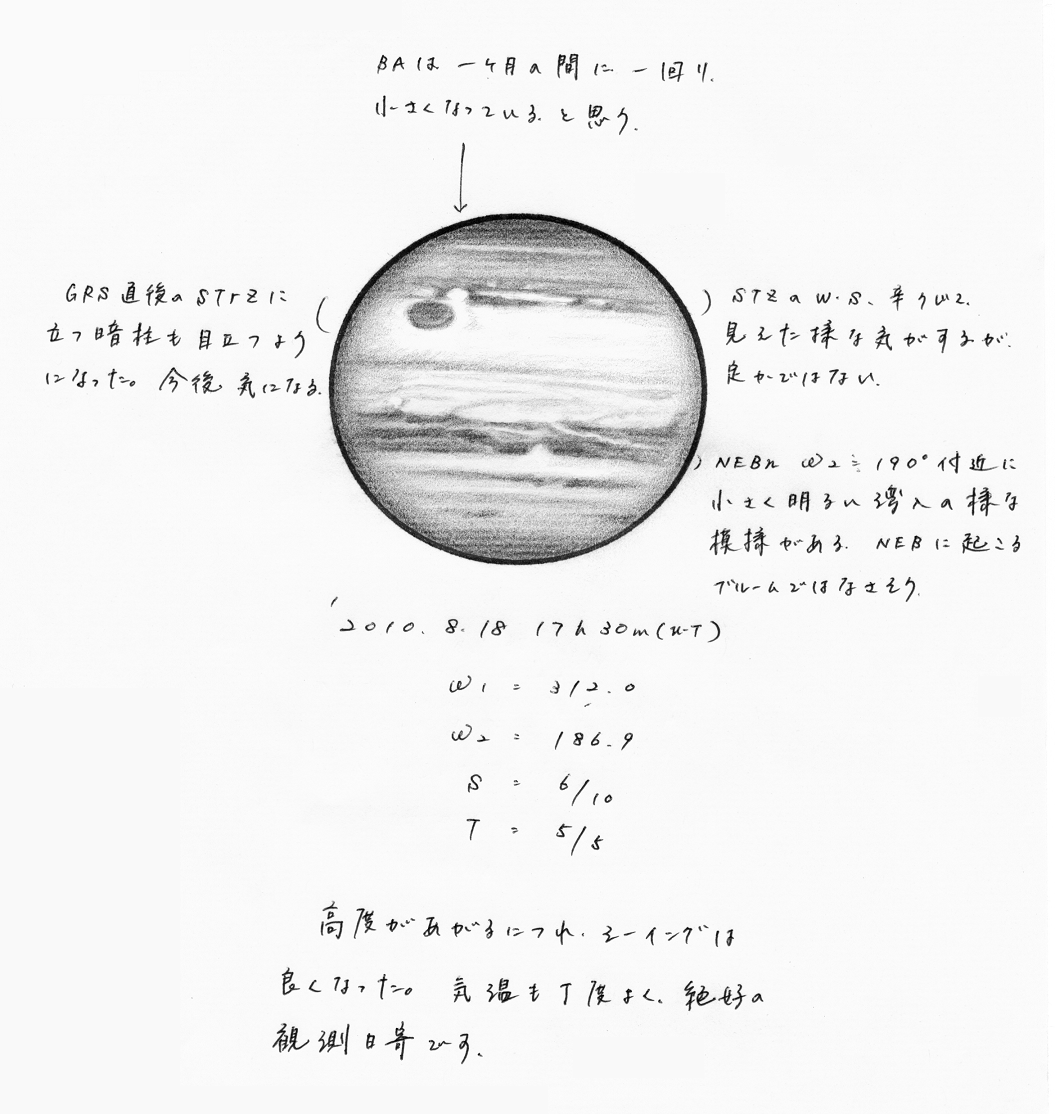 BAは一ヶ月の間に一回り
小さくなっていると思う.
GRS直後のSTrZに
立つ暗柱も目立つよう
になった。今後気になる.
STZのW.S.、辛うじて.
見えた様な気がするが.
定かではない.
NEBn ω2≒190°付近に
小さく明るい湾入の様な
模様がある. NEBに起こる
プルームではなさそう.
'2010. 8. 18 17h 30m (UT)
ω1 = 312.0
ω2 = 186.9
S = 6/10
T = 5/5
高度があがるにつれ、シーイングは
良くなった。気温も丁度よく、絶好の
観測日寄です.